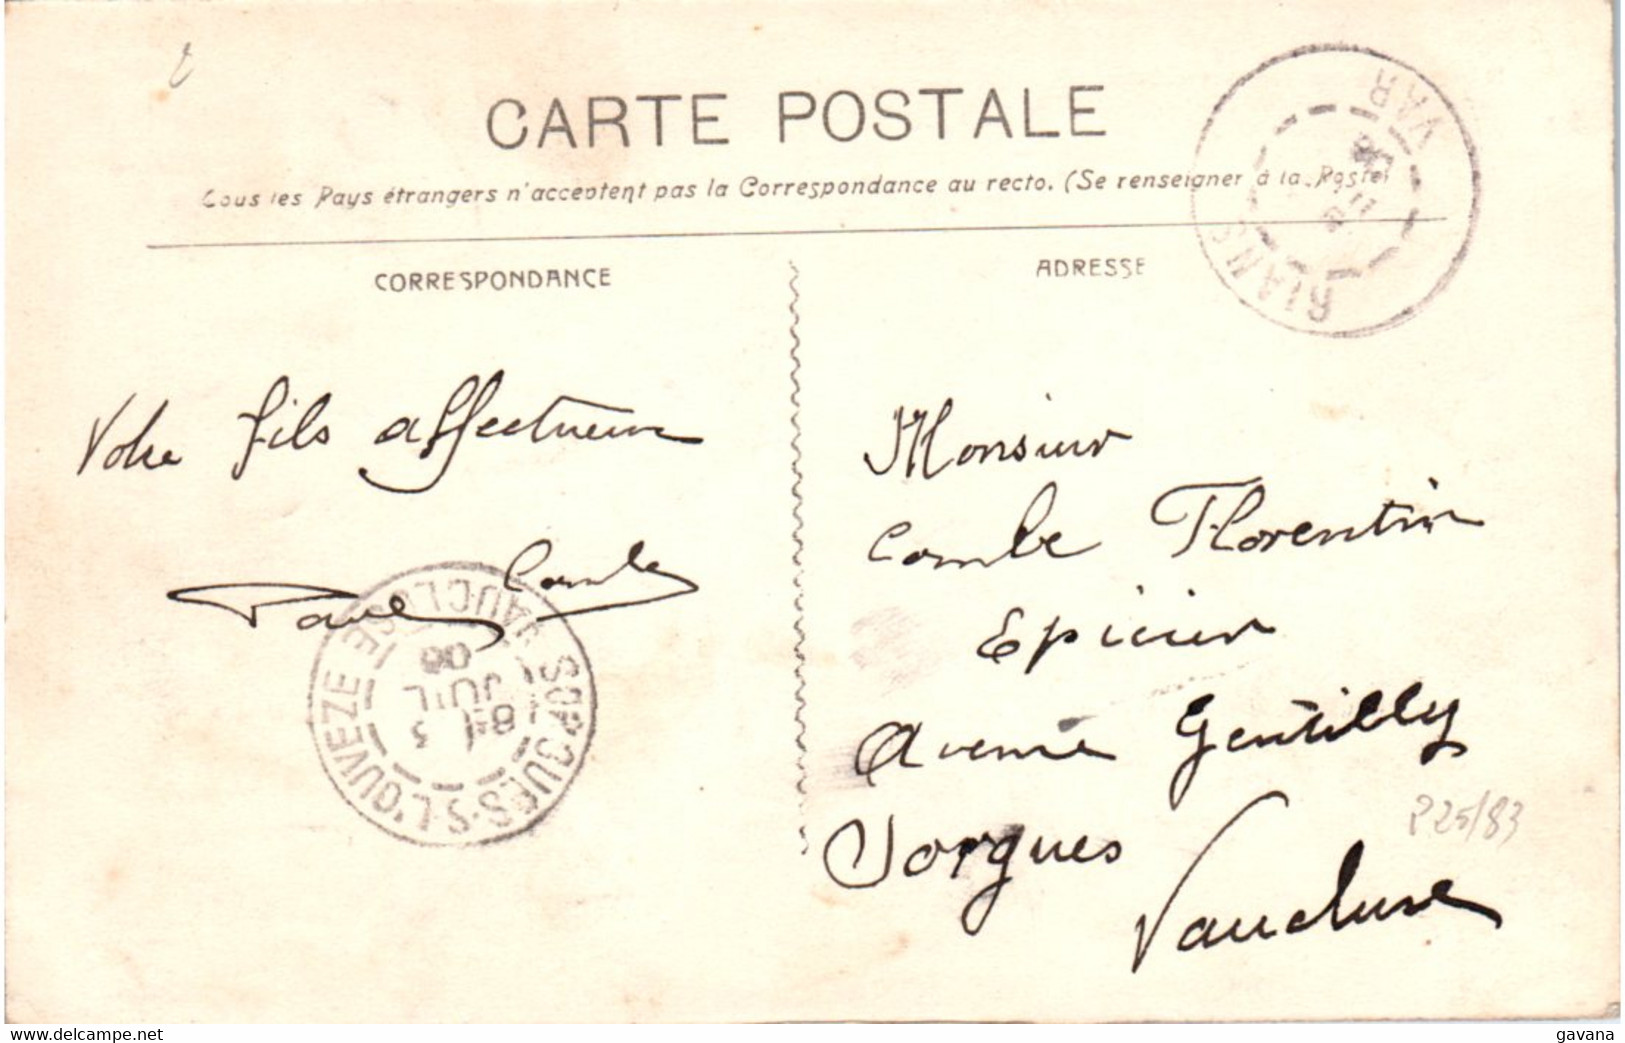 CARTE POSTALE
Tous les Pays étrangers n'acceptent pas la Correspondance au recto. (Se renseigner à la Poste)
CORRESPONDANCE
ADRESSE
RIANS
VAR
Votre fils affectueux
Combe
Monsieur
Combe Florentin
Epicier
Avenue Gentilly
Sorgues
Vaucluse
SORGUES-S-L'OUVEZE
VAUCLUSE
JUIL
08
P25/83
www.delcampe.net
gavana